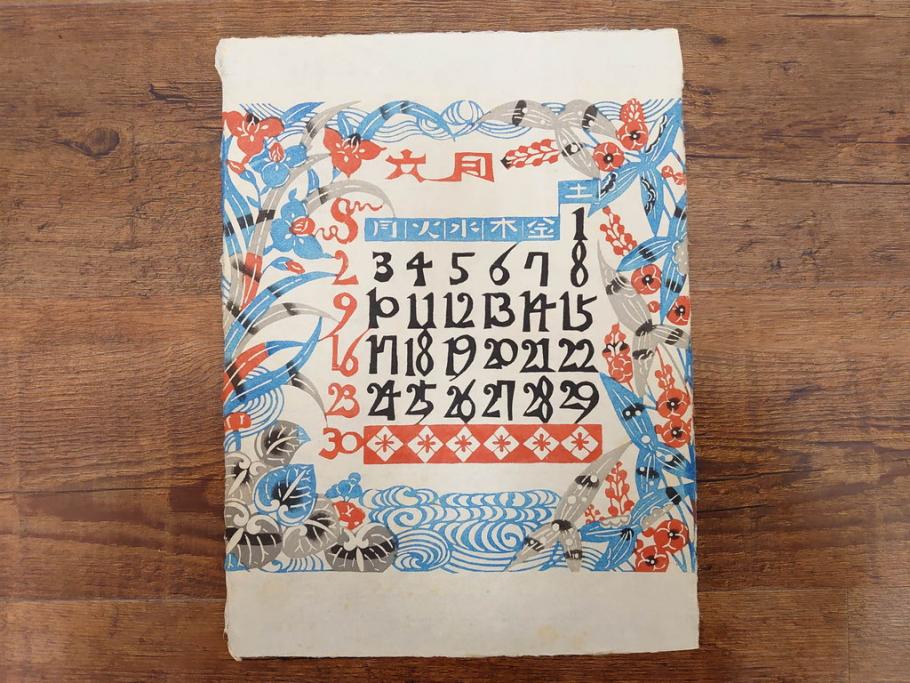 六月
土
S 月 火 水 木 金 1
2 3 4 5 6 7 8
9 10 11 12 13 14 15
16 17 18 19 20 21 22
23 24 25 26 27 28 29
30